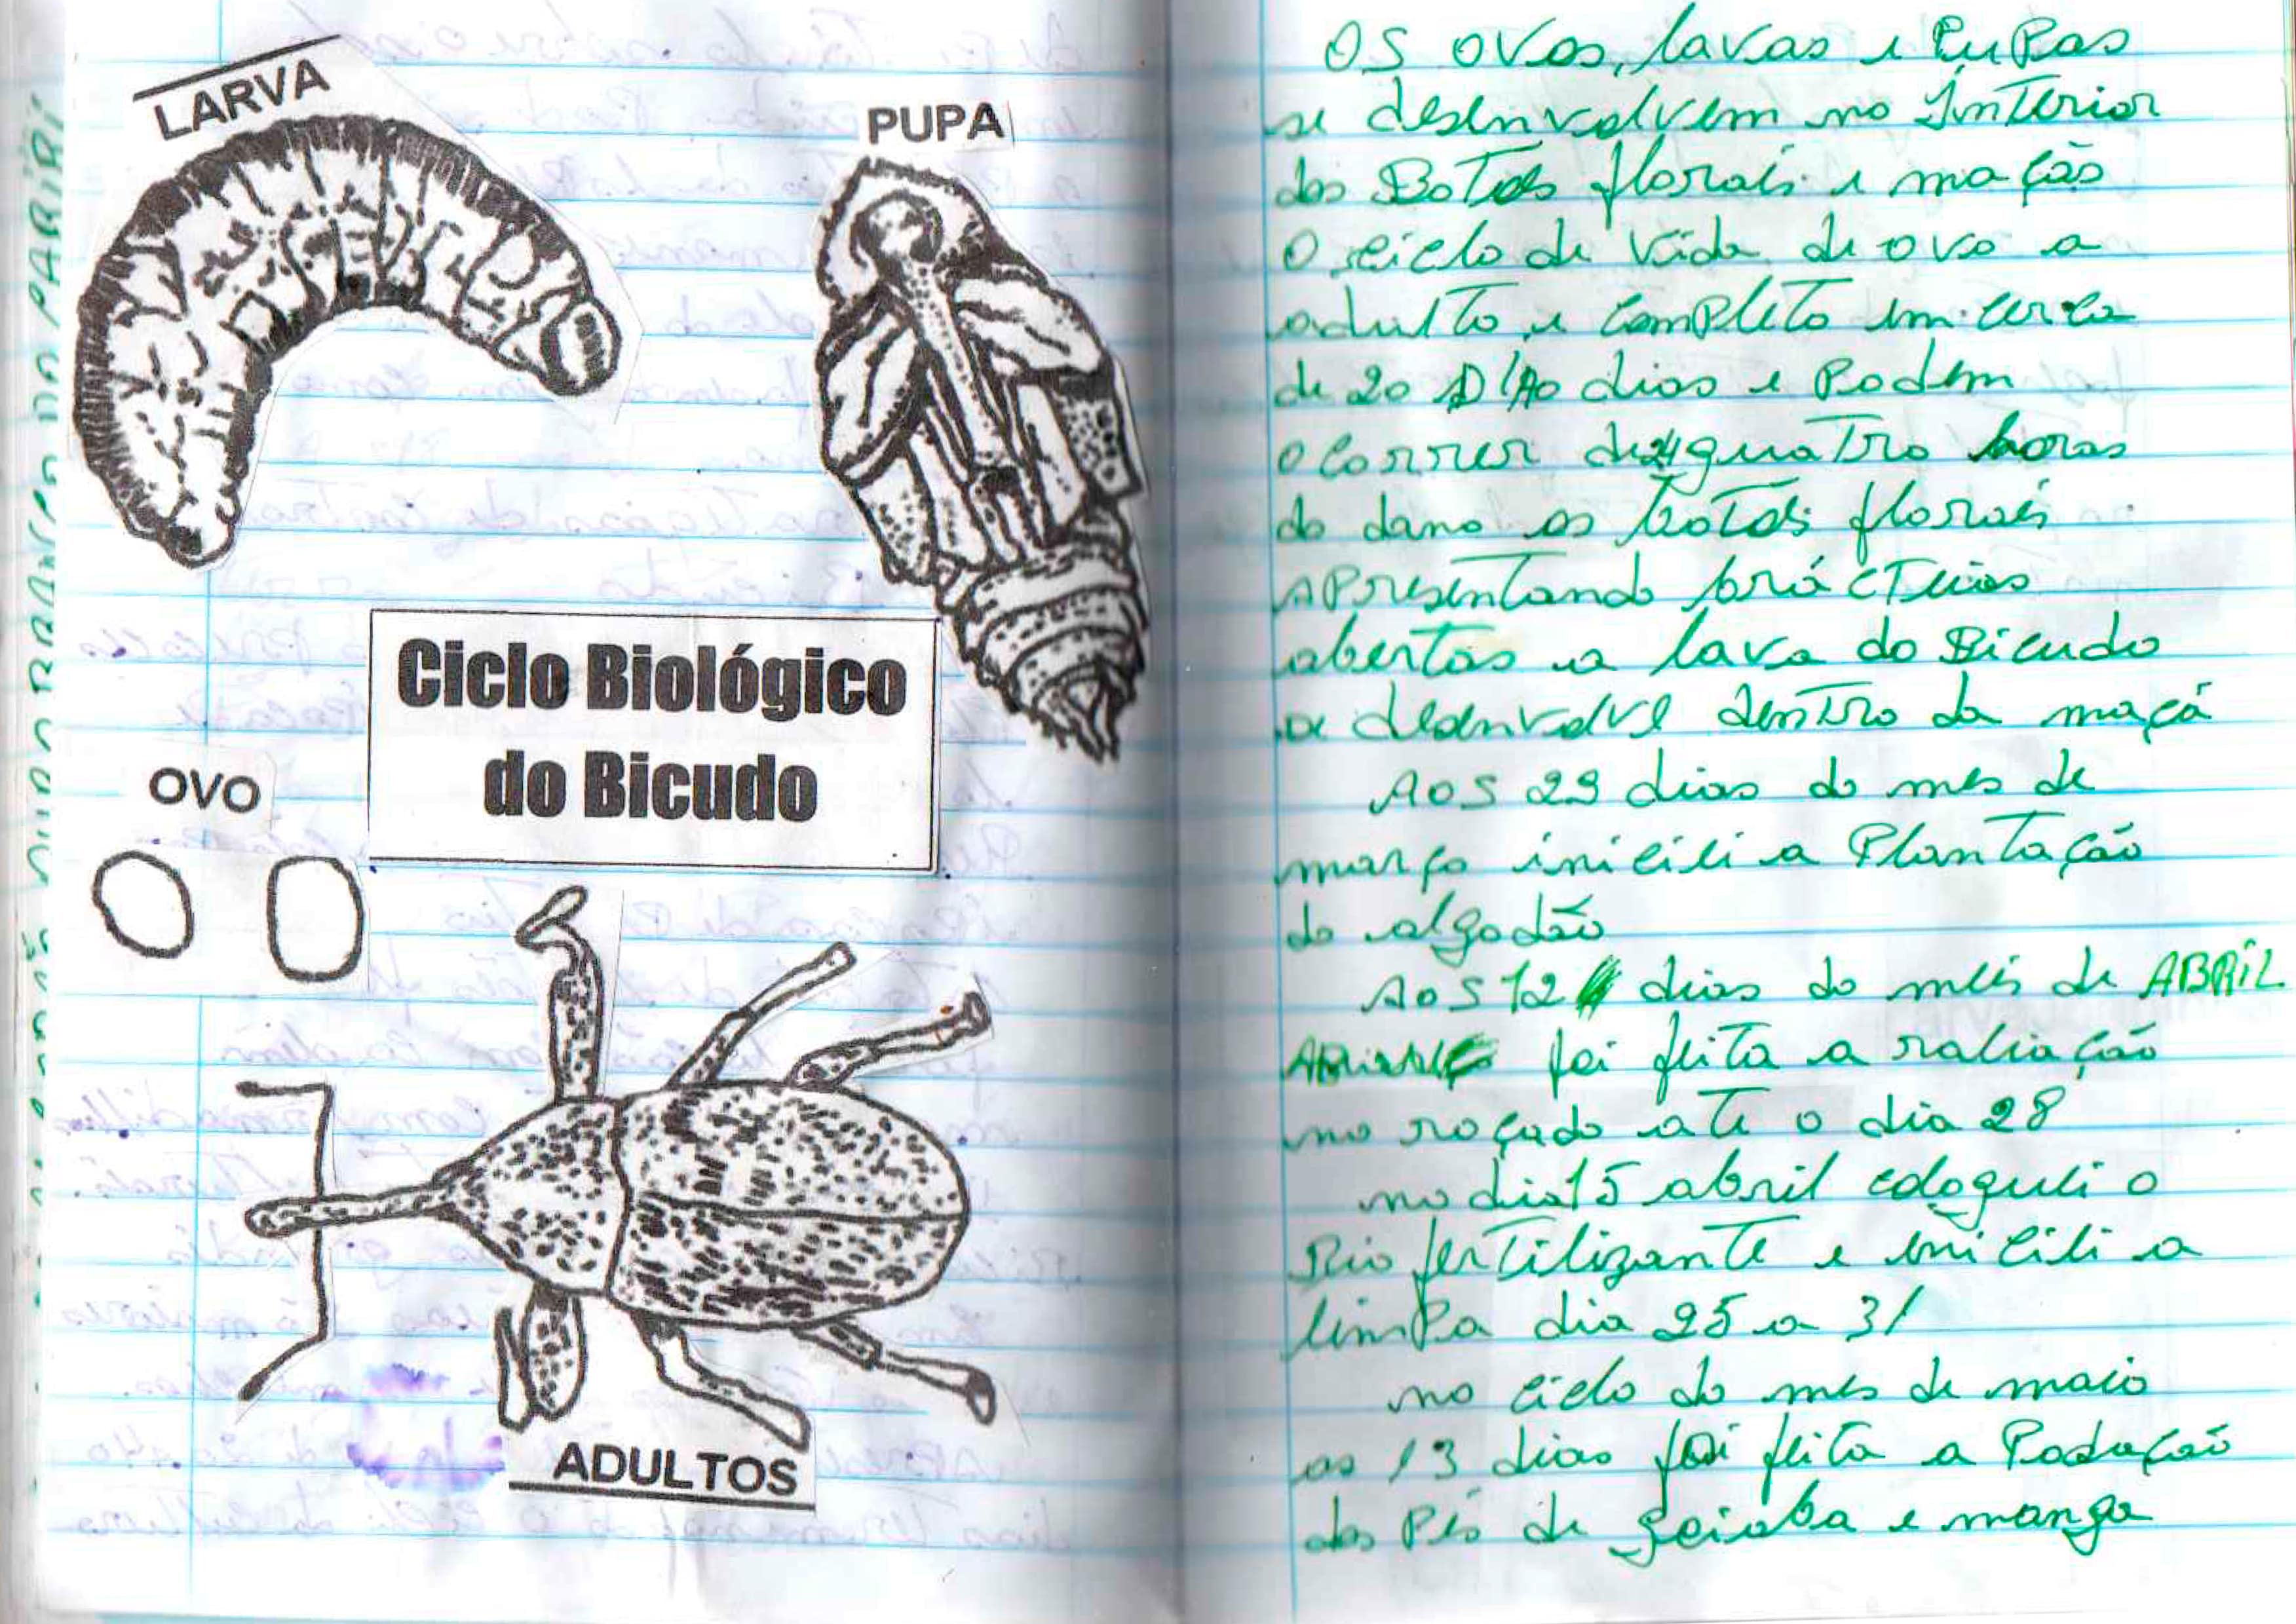 LARVA
PUPA
Ciclo Biológico
do Bicudo
OVO
ADULTOS
OS OVOs, lavas e PuPas
se desenvolvem no Interior
dos Botos florais e mação
O ciclo de vida de ovo a
adulto e completo em cerca
de 20 dias e Podem
ocorrer quatro horas
do dano os botos florais
APresentando brácteias
abertas a lava do Bicudo
se desenvolve dentro da maçá
AOS 29 dias do mes de
março inicili a Plantação
do algodão
AOS 12 dias do mês de ABRIL
foi feita a raliação
no roçado ate o dia 28
no dia 15 abril cologuei o
Bio fertilizante e inicili a
limPa dia 25 a 31
no ciclo do mes de maio
as 13 dias foi feita a Podação
dos Pés de goiaba e manga